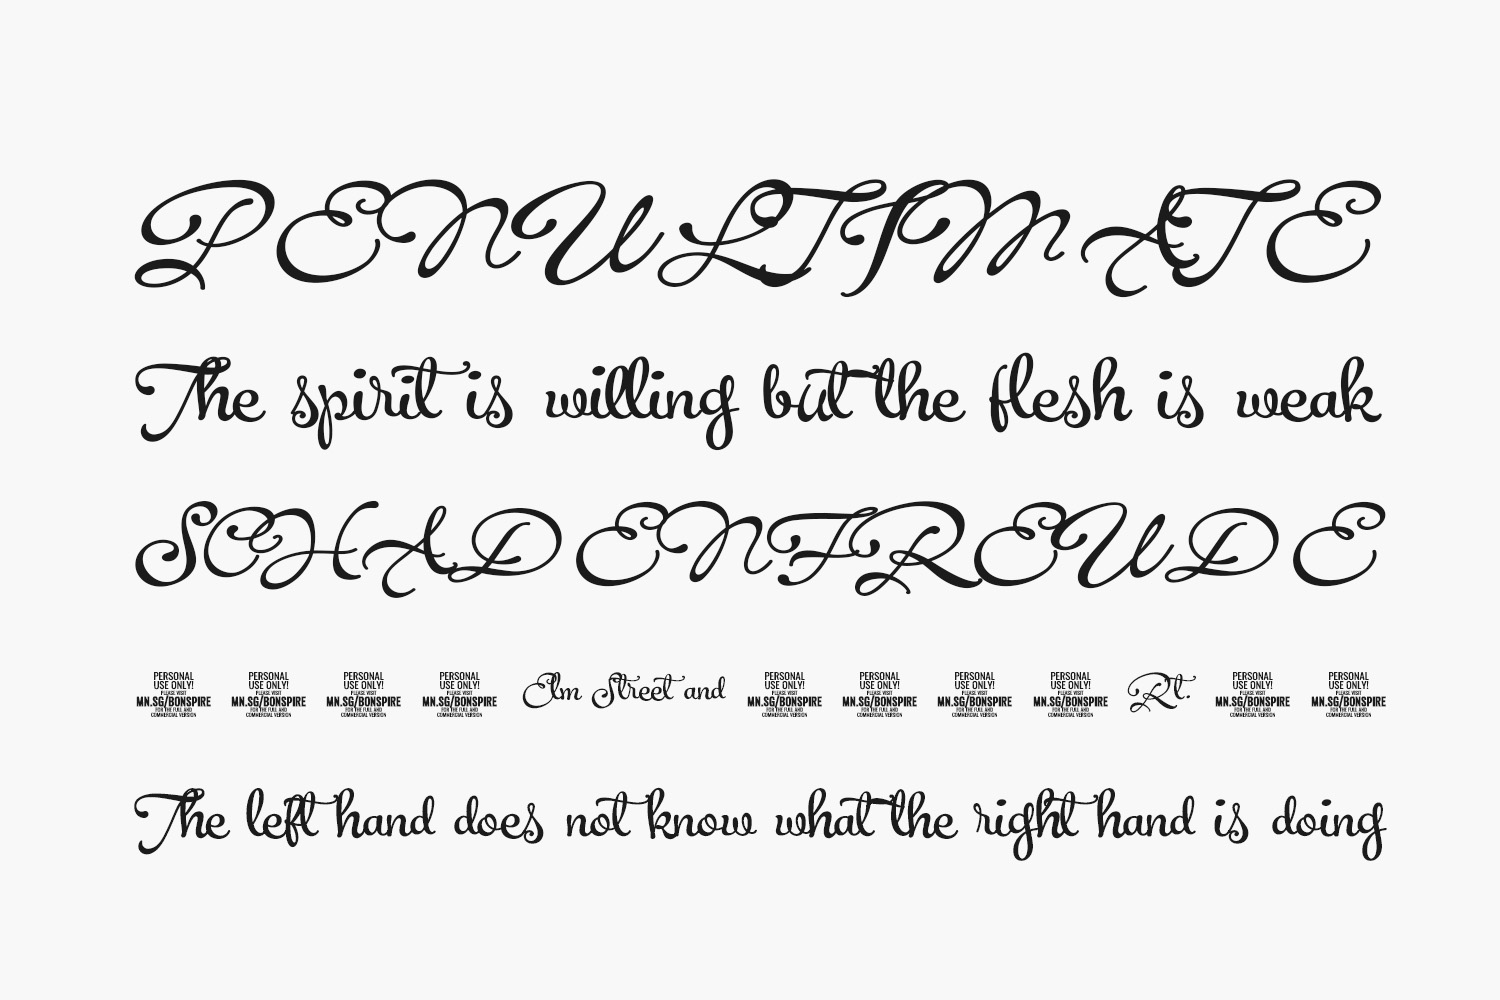 PENULTIMATE
The spirit is willing but the flesh is weak
SCHADENFREUDE
PERSONAL USE ONLY! PLEASE VISIT MN.SG/BONSPIRE FOR THE FULL AND COMMERCIAL VERSION PERSONAL USE ONLY! PLEASE VISIT MN.SG/BONSPIRE FOR THE FULL AND COMMERCIAL VERSION PERSONAL USE ONLY! PLEASE VISIT MN.SG/BONSPIRE FOR THE FULL AND COMMERCIAL VERSION PERSONAL USE ONLY! PLEASE VISIT MN.SG/BONSPIRE FOR THE FULL AND COMMERCIAL VERSION Elm Street and PERSONAL USE ONLY! PLEASE VISIT MN.SG/BONSPIRE FOR THE FULL AND COMMERCIAL VERSION PERSONAL USE ONLY! PLEASE VISIT MN.SG/BONSPIRE FOR THE FULL AND COMMERCIAL VERSION PERSONAL USE ONLY! PLEASE VISIT MN.SG/BONSPIRE FOR THE FULL AND COMMERCIAL VERSION PERSONAL USE ONLY! PLEASE VISIT MN.SG/BONSPIRE FOR THE FULL AND COMMERCIAL VERSION Rt. PERSONAL USE ONLY! PLEASE VISIT MN.SG/BONSPIRE FOR THE FULL AND COMMERCIAL VERSION PERSONAL USE ONLY! PLEASE VISIT MN.SG/BONSPIRE FOR THE FULL AND COMMERCIAL VERSION
The left hand does not know what the right hand is doing